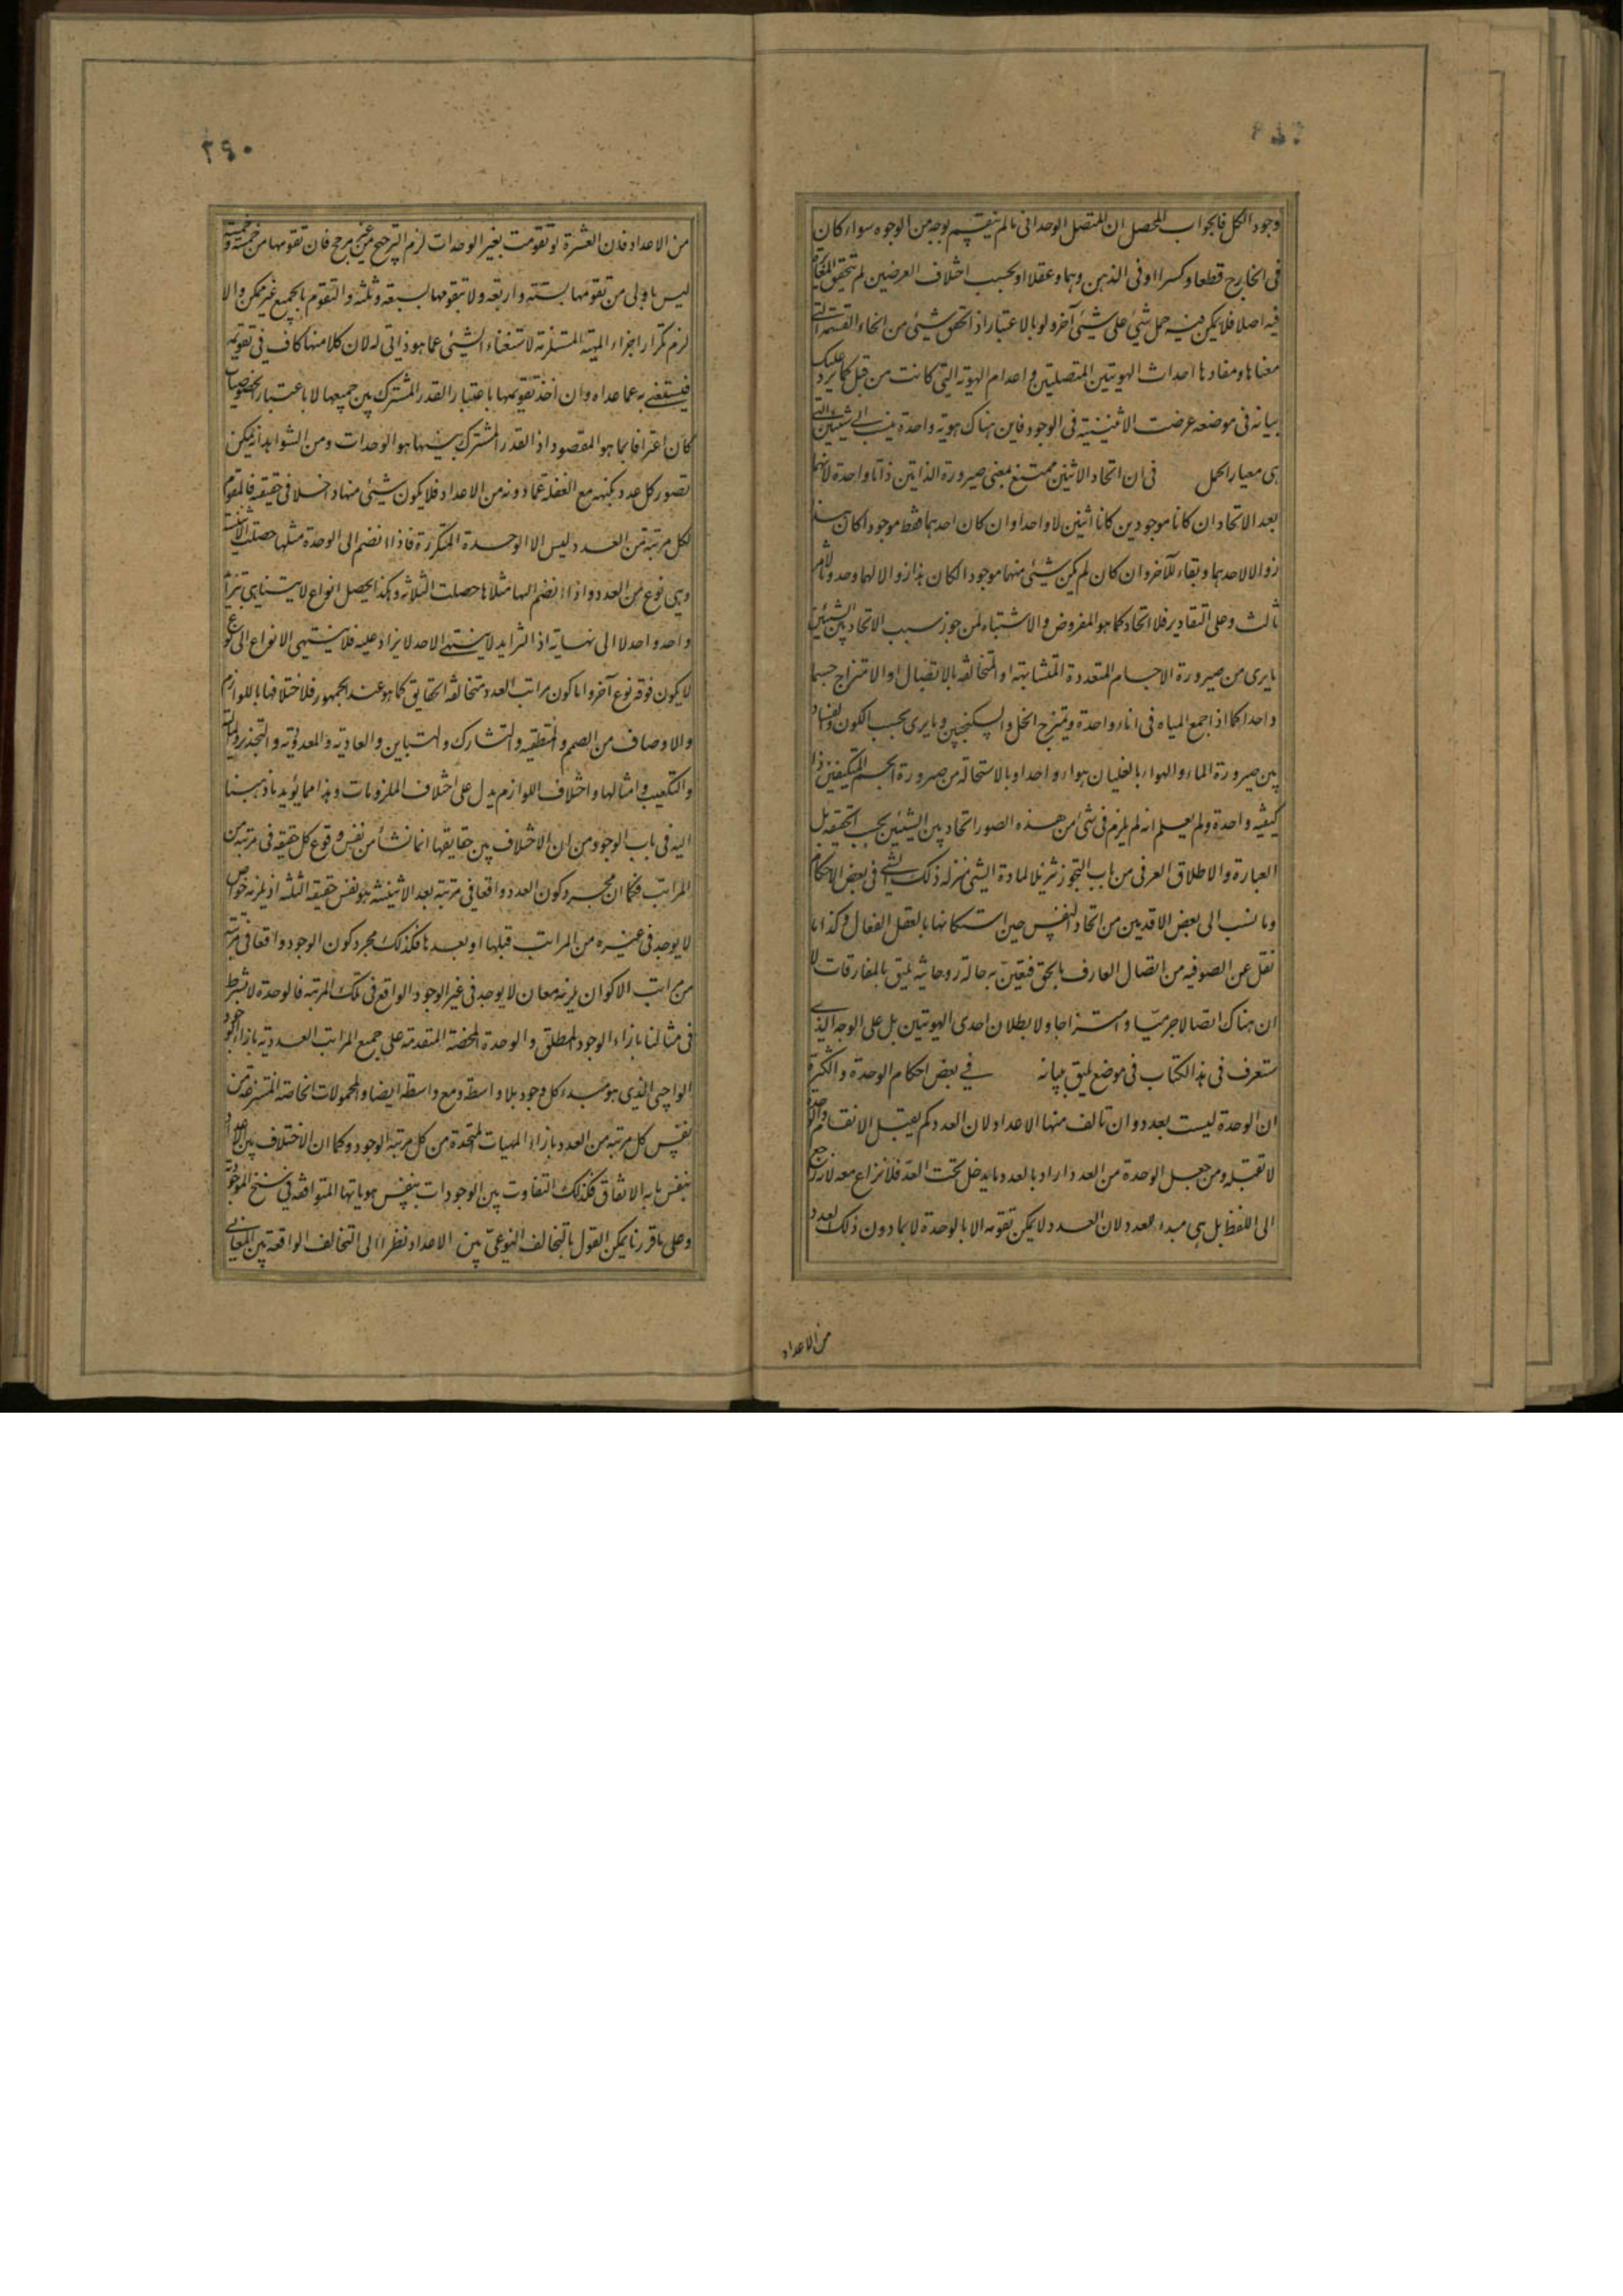 وجود الكل فالجواب المحصل ان المتصل الوحدانى ما لم ينقسم بوجه من الوجوه سواء كان
فى الخارج قطعا وكسرا او فى الذهن وهما وعقلا او بحسب اختلاف العرضين لم يتحقق المغايرة
فيه اصلا فلا يمكن فيه حمل شئ على شئ آخر ولو بالاعتبار اذا تحقق شئ من انحاء القسمة التى
معناها ومفادها احداث الهويتين المتصلتين و اعدام الهوية التى كانت من قبل كما يرد عليك
بيانه فى موضعه عرضت الاثنينية فى الوجود فاين هناك هوية واحدة ينسب الى شيئين التى
هى معيار الحمل فى ان اتحاد الاثنين ممتنع بمعنى صيرورة الذاتين ذاتا واحدة لانهما
بعد الاتحاد ان كانا موجودين كانا اثنين لا واحدا وان كان احدهما فقط موجودا كان هذا
زوالا لاحدهما وبقاء للآخر وان كان لم يكن شئ منهما موجودا كان هذا زوالا لهما وحدوثا لامر
ثالث وعلى التقادير فلا اتحاد كما هو المفروض والاشتباه لمن جوز سبب الاتحاد بين الشيئين
ما يرى من صيرورة الاجسام المتعددة المتشابهة او المتخالفة بالاتصال او الامتزاج جسما
واحدا كما اذا جمع المياه فى اناء واحدة ويمتزج الخل والسكنجبين وما يرى بحسب الكون والفساد
بين صيرورة الماء والهواء بالغليان هواء واحدا وبالاستحالة من صيرورة الجسم المتكيفين ذا
كيفيه واحدة ولم يعلم انه لم يلزم فى شئ من هذه الصور اتحاد بين الشيئين بحسب الحقيقه بل
العبارة والاطلاق العرفى من باب التجوز تنزيلا لمادة الشئ منزله ذلك الشئ فى بعض الاحكام
وما نسب الى بعض الاقدمين من اتحاد النفس حين استكمالها بالعقل الفعال وكذا ما
نقل عن الصوفيه من اتصال العارف بالحق فيعنى به حالة روحانيه يليق بالمفارقات لا
ان هناك اتصالا جرميا و امتزاجا ولا بطلان احدى الهويتين بل على الوجه الذى
ستعرف فى هذا الكتاب فى موضع يليق ببيانه فى بعض احكام الوحدة والكثرة
ان الوحدة ليست بعدد وان تالف منها الاعداد لان العدد كم يقبل الانقسام والوحدة
لا تقبله ومن جعل الوحدة من العدد اراد بالعدد ما يدخل تحت العد فلا نزاع معه لانه راجع
الى اللفظ بل هى مبدء للعدد لان العدد لا يمكن تقومه الا بالوحدة لا بما دون ذلك العدد
من الاعداد
٢٩٠
من الاعداد فان العشرة لو تقومت بغير الوحدات لزم الترجح من غير مرجح فان تقومها من خمسة وخمسة
ليس باولى من تقومها بستة واربعه ولا بتقومها بسبعه وثلثه والتقوم بالجميع غير ممكن والا
لزم تكرار اجزاء المهية المستلزمة لاستغناء الشئ عما هو ذاتى له لان كلا منها كاف فى تقومه
فيستغنى به عما عداه وان اخذ تقومها باعتبار القدر المشترك بين جميعها لا باعتبار الخصوصيات
كان اعترافا بما هو المقصود اذ القدر المشترك بينها هو الوحدات ومن الشواهد انه يمكن
تصور كل عدد بكنهه مع الغفلة عما دونه من الاعداد فلا يكون شئ منها داخلا فى حقيقته فالمقوم
لكل مرتبة من العدد ليس الا الوحدة المتكررة فاذا انضم الى الوحدة مثلها حصلت الاثنينية
وهى نوع من العدد واذا انضم اليها مثلاها حصلت الثلاثة وهكذا يحصل انواع لا يتناهى بتزايد
واحد واحد لا الى نهاية اذ التزايد لا ينتهى الا حد لا يزاد عليه فلا ينتهى الانواع الى نوع
لا يكون فوقه نوع آخر واما كون مراتب العدد متخالفة الحقايق كما هو عند الجمهور فلاختلافها باللوازم
والاوصاف من الصمم والمنطقيه والتشارك والتباين والعادية والمعدودية والتجذير والمالية
والتكعيب وامثالها واختلاف اللوازم يدل على اختلاف الملزومات وهذا مما يؤيد ما ذهبنا
اليه فى باب الوجود من ان الاختلاف بين حقايقها انما نشأ من نفس وقوع كل حقيقه فى مرتبة من
المراتب فكما ان مجرد كون العدد واقعا فى مرتبة بعد الاثنينيه هو نفس حقيقه الثلثه اذ يلزمه خواص
لا يوجد فى غيره من المراتب قبلها او بعدها فكذلك مجرد كون الوجود واقعا فى مرتبة
من مراتب الاكوان يلزمه معان لا يوجد فى غير الوجود الواقع فى تلك المرتبه فالوحدة لا بشرط
فى مثالنا بازاء الوجود المطلق والوحدة المحضة المتقدمة على جميع المراتب العدديه بازاء الوجود
الواجبى الذى هو مبدء كل وجود بلا واسطه ومع واسطه ايضا والمحمولات الخاصه المنتزعة من
نفس كل مرتبه من العدد بازاء المهيات المتحدة من كل مرتبه الوجود وكما ان الاختلاف بين الاعداد
بنفس ما به الاتفاق فكذلك التفاوت بين الوجودات بنفس هوياتها المتوافقه فى سنخ الموجودية
وعلى ما قررنا يمكن القول بالتخالف النوعى بين الاعداد نظرا الى التخالف الواقعة بين المعانى